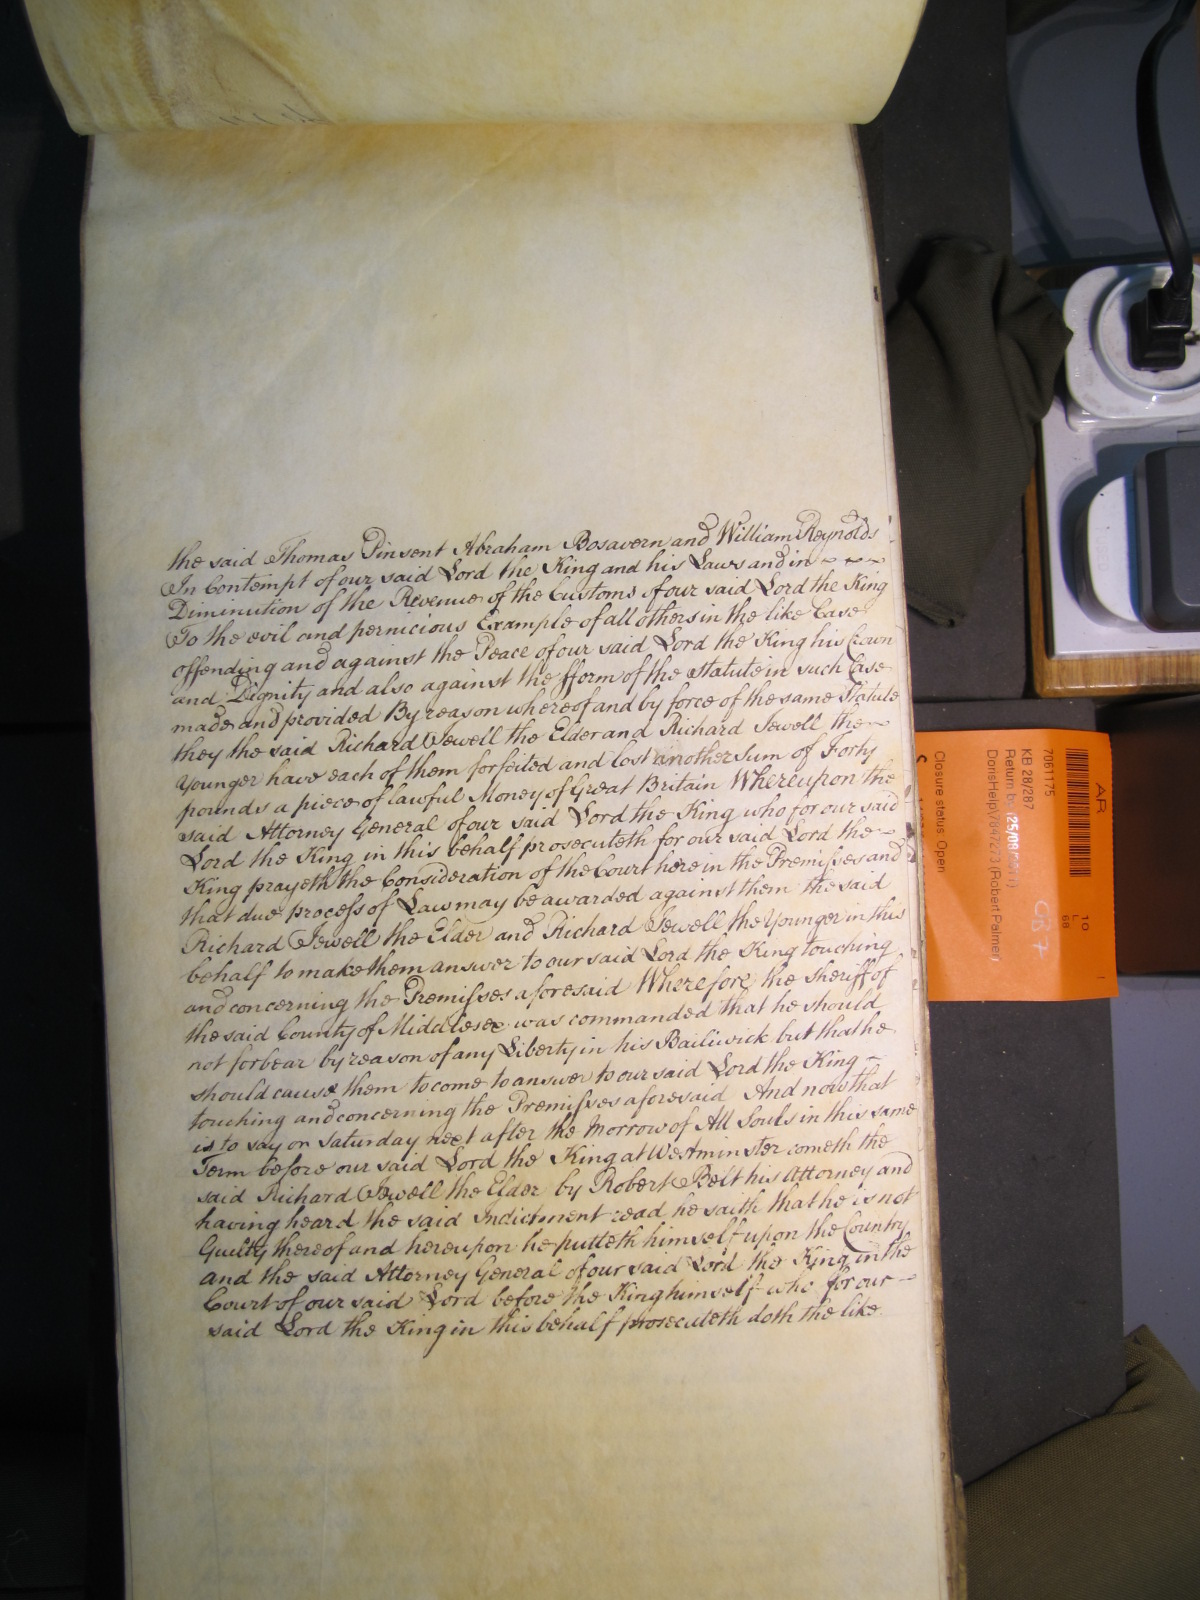 the said Thomas Pinsent Abraham Bosavern and William Reynolds
In Contempt of our said Lord the King and his Laws and in
Diminution of the Revenue of the Customs of our said Lord the King
To the evil and pernicious Example of all others in the like Case
offending and against the Peace of our said Lord the King his Crown
and Dignity and also against the fform of the Statute in such Case
made and provided By reason whereof and by force of the same Statute
they the said Richard Jewell the Elder and Richard Jewell the
Younger have each of them forfeited and lost another Sum of Forty
pounds a piece of lawful Money of Great Britain Whereupon the
said Attorney General of our said Lord the King who for our said
Lord the King in this behalf prosecuteth for our said Lord the
King prayeth the Consideration of the Court here in the Premisses and
that due process of Law may be awarded against them the said
Richard Jewell the Elder and Richard Jewell the Younger in this
behalf to make them answer to our said Lord the King touching
and concerning the Premisses aforesaid Wherefore the Sheriff of
the said County of Middlesex was commanded that he should
not forbear by reason of any Liberty in his Bailiwick but that he
should cause them to come to answer to our said Lord the King
touching and concerning the Premisses aforesaid And now that
is to say on Saturday next after the Morrow of All Souls in this same
Term before our said Lord the King at Westminster cometh the
said Richard Jewell the Elder by Robert Belt his Attorney and
having heard the said Indictment read he saith that he is not
Guilty thereof and hereupon he putteth himself upon the Country
and the said Attorney General of our said Lord the King in the
Court of our said Lord before the King himself who for our
said Lord the King in this behalf prosecuteth doth the like
AR
7061175
KB 28/287
Return by
DorisHelp
(Robert Palmer)
Closure status: Open